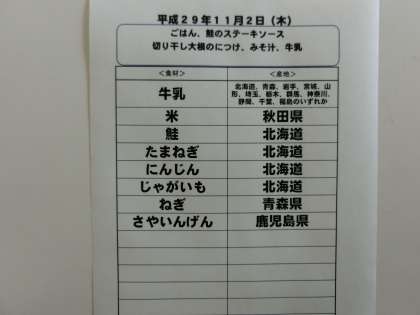 平成２９年１１月２日（木）
ごはん、鮭のステーキソース
切り干し大根のにつけ、みそ汁、牛乳
＜食材＞ ＜産地＞
牛乳 北海道、青森、岩手、宮城、山
形、埼玉、栃木、群馬、神奈川、
静岡、千葉、福島のいずれか
米 秋田県
鮭 北海道
たまねぎ 北海道
にんじん 北海道
じゃがいも 北海道
ねぎ 青森県
さやいんげん 鹿児島県